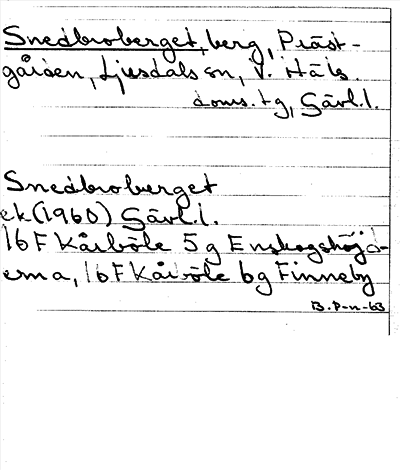 Snedbroberget, berg, Präst-
gården, Ljusdals sn, V. Häls.
doms. tg, Gävl.l.
Snedbroberget
ek (1960) Gävl.l.
16F Kårböle 5g Enskogshöjd-
erna, 16F Kårböle 6g Finneby
B. P-n-63